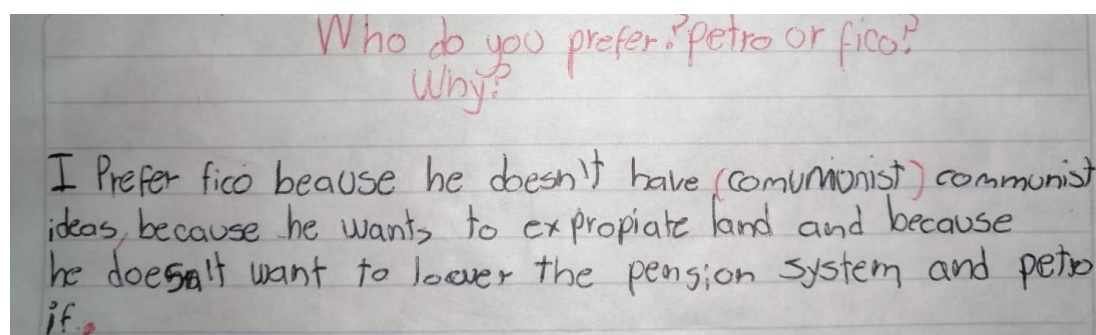 Who do you prefer? petro or fico?
Why?
I Prefer fico beause he doesn't have (comumionist) communist
ideas, because he wants to expropiate land and because
he doesn't want to lower the pension system and petro
if.